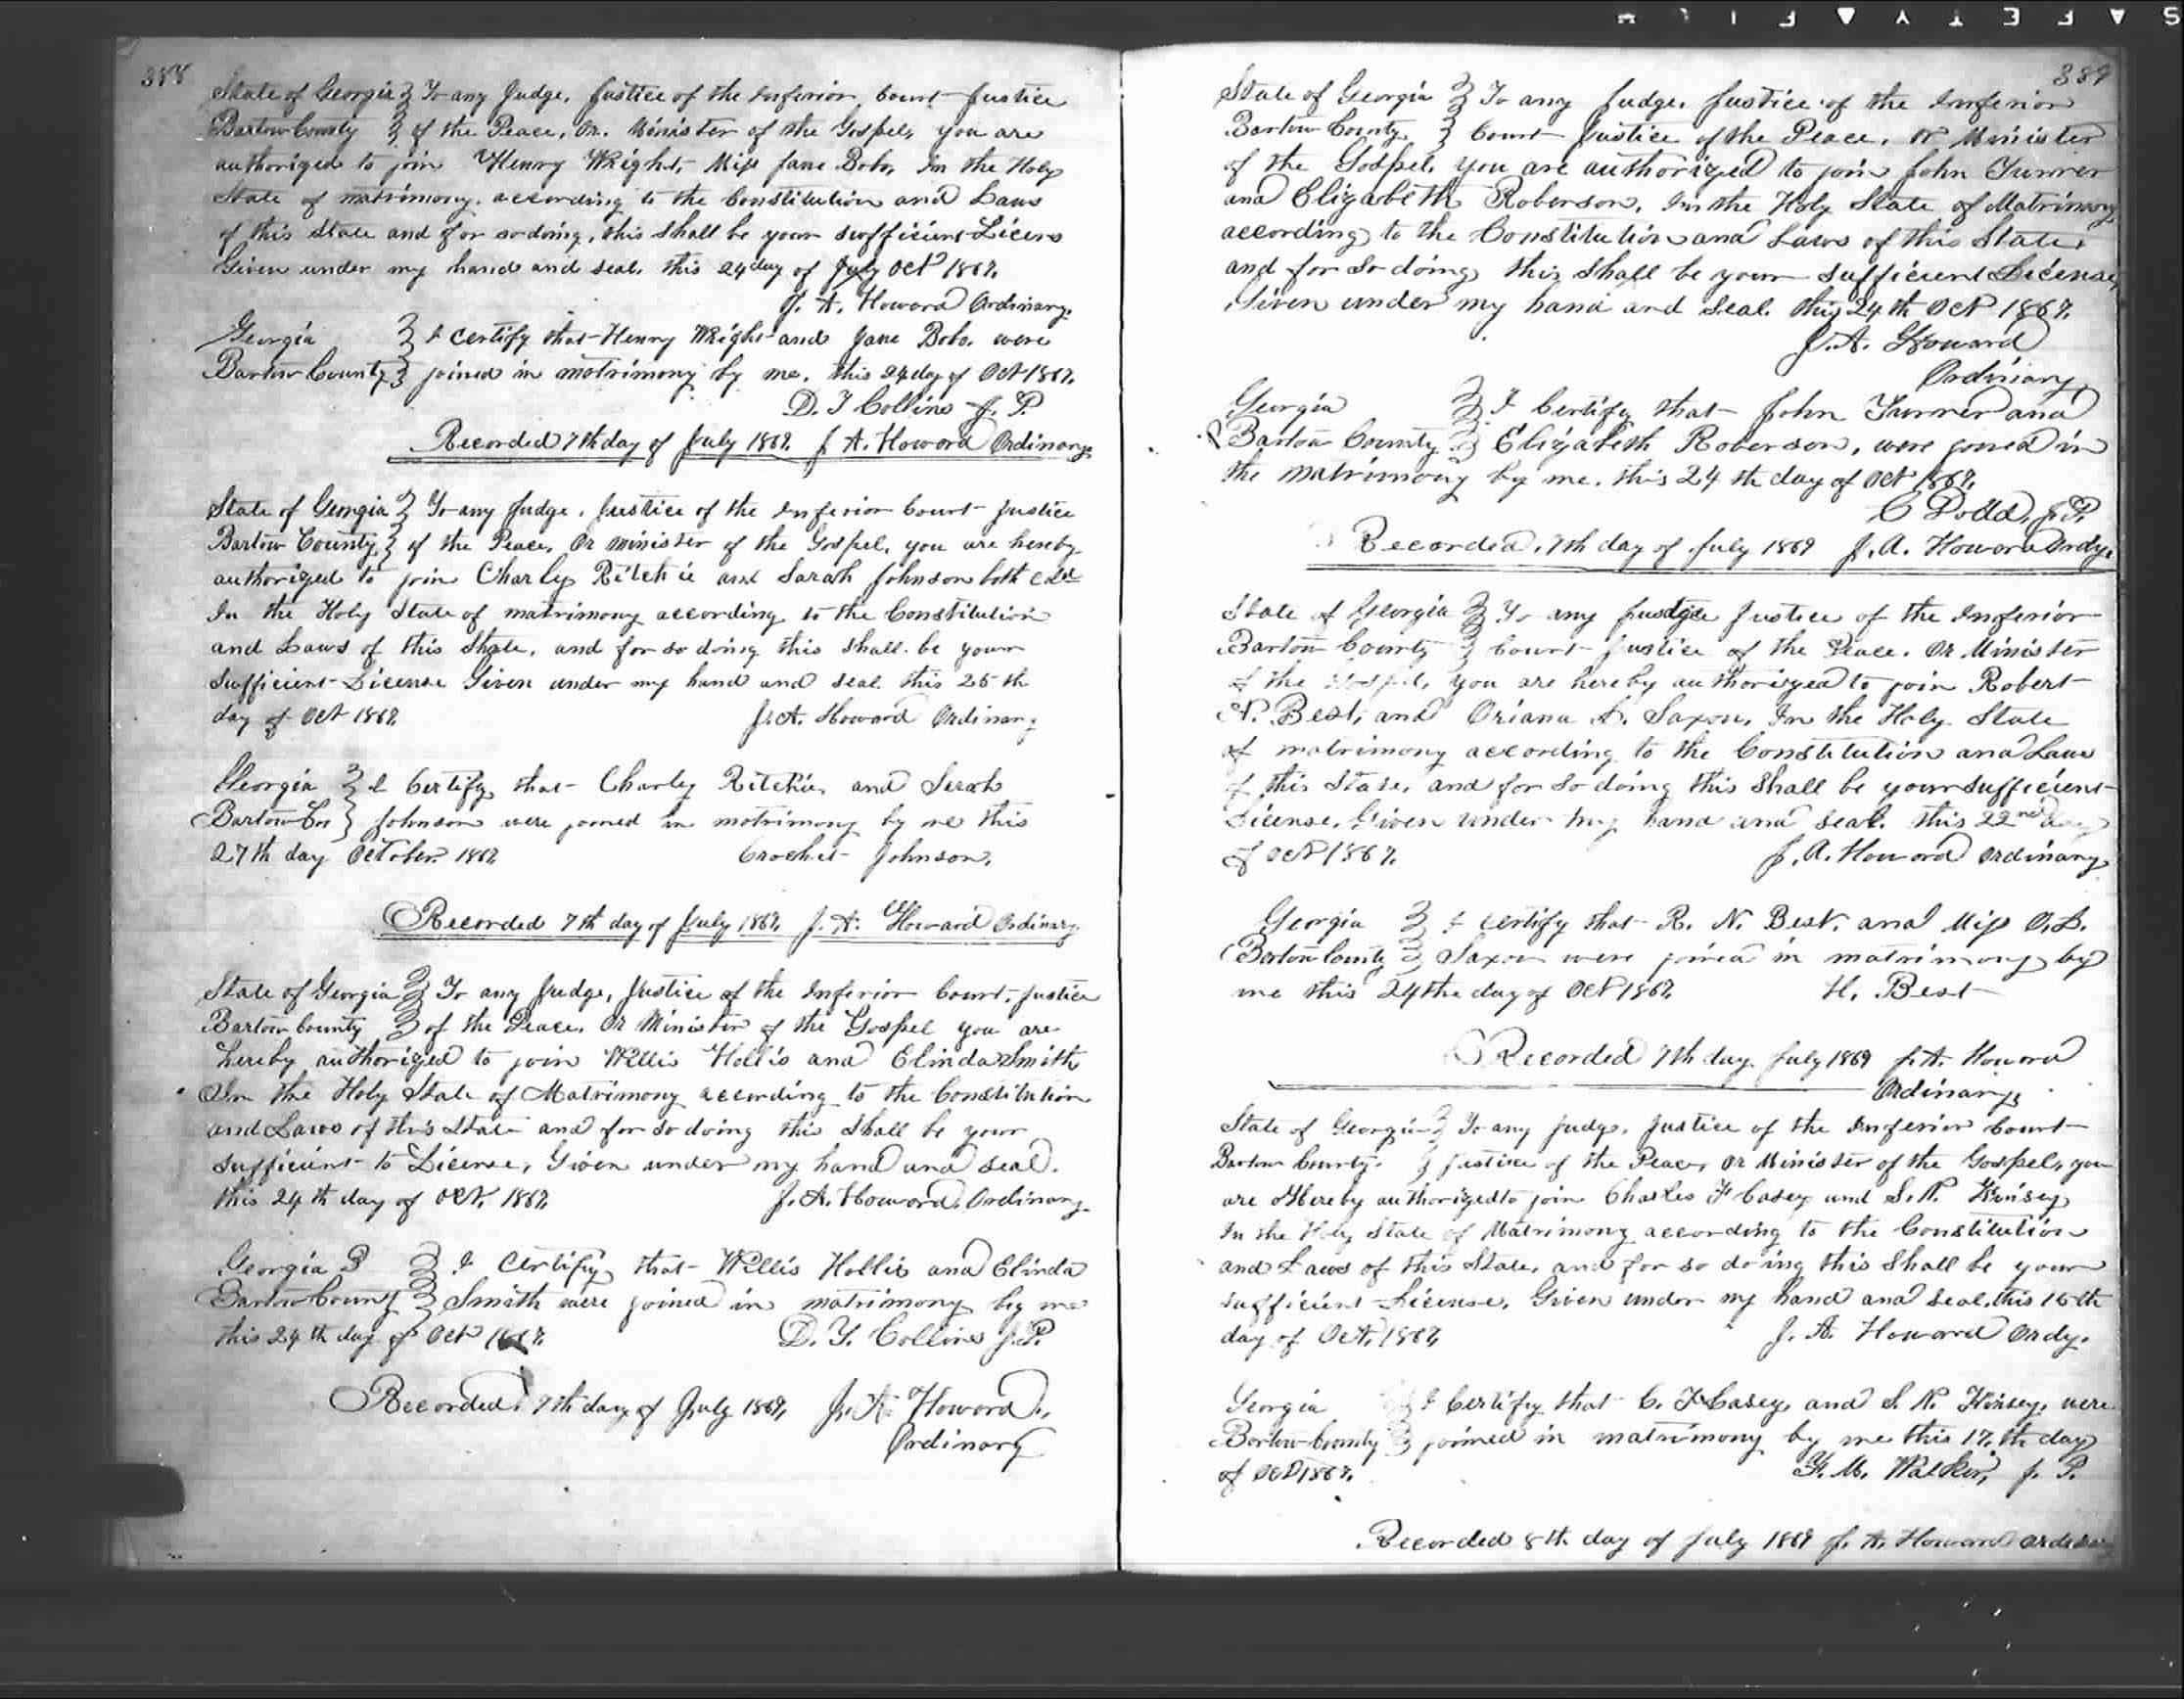 SAFETY FILM
388
State of Georgia } To any Judge, Justice of the Inferior Court Justice
Bartow County } of the Peace, Or. Minister of the Gospel, you are
authorized to join Henry Wright, Miss Jane Bobo, In the Holy
State of matrimony, according to the Constitution and Laws
of this State and for so doing, this shall be your sufficient Licens
Given under my hand and seal, this 24 day of July Oct 1867.
J. A. Howard Ordinary.
Georgia } I certify that Henry Wright and Jane Bobo, were
Bartow County } joined in matrimony by me, this 24 day of Oct 1867.
D. T Collins J. P.
Recorded 7th day of July 1869. J A. Howard Ordinary
State of Georgia } To any Judge, Justice of the Inferior Court Justice
Bartow County } of the Peace, Or Minister of the Gospel, you are hereby
authorized to join Charly Ritchie and Sarah Johnson both Cold
In the Holy State of matrimony according to the Constitution
and Laws of this State, and for so doing this shall be your
Sufficient License Given under my hand and seal this 25th
day of Oct 1867. J. A. Howard Ordinary
Georgia } I Certify that Charly Ritchie, and Serah
Bartow Co } Johnson were joined in matrimony by me this
27th day October 1867 Crochet Johnson.
Recorded 7th day of July 1869, J. A. Howard Ordinary
State of Georgia } To any Judge, Justice of the Inferior Court, Justice
Bartow County } of the Peace, Or Minister of the Gospel you are
hereby authorized to join Willis Hollis and Elinda Smith
In the Holy State of Matrimony according to the Constitution
and Laws of this State and for so doing this shall be your
sufficient to License, Given under my hand and seal.
this 24th day of Oct. 1867, J. A. Howard, Ordinary
Georgia } I Certify that Willis Hollis and Elinda
Bartow County } Smith were joined in matrimony by me
this 24th day of Oct 1867. D. T. Collins J. P.
Recorded 7th day of July 1869, J. A. Howard,
Ordinary
389
State of Georgia } To any Judge, Justice of the Inferior
Bartow County } Court Justice of the Peace, Or Minister
of the Gospel, you are authorized to join John Turner
and Elizabeth Roberson, In the Holy State of Matrimony
according to the Constitution and Laws of this State,
and for so doing this shall be your sufficient License,
Given under my hand and Seal this 24th Oct 1867.
J. A. Howard
Ordinary
Georgia } I Certify that John Turner and
Bartow County } Elizabeth Roberson, were joned in
the matrimony by me, this 24th day of Oct 1867,
C Dodd, J. P.
Recorded, 7th day of July 1869 J. A. Howard Ordy.
State of Georgia } To any Justice of the Inferior
Bartow County } Court Justice of the Peace. Or Minister
of the Gospel, you are hereby authorized to join Robert
N. Best, and Oriana A. Saxon, In the Holy State
of matrimony according to the Constitution and Laws
of this State, and for so doing this shall be your sufficient
License. Given under my hand and seal. this 22nd day
of Oct 1867. J. A. Howard Ordinary
Georgia } I certify that R. N. Best. and Miss O. A.
Bartow County } Saxon were joined in matrimony by
me this 24th day of Oct 1867, H. Best
Recorded 7th day July 1869 J. A. Howard
Ordinary
State of Georgia } To any Judge, Justice of the Inferior Court
Bartow County. } Justice of the Peace, Or Minister of the Gospel, you
are hereby authorized to join Charles F Casey and S. N. Kinsey
In the Holy State of Matrimony according to the Constitution
and Laws of this State, and for so doing this shall be your
sufficient License, Given under my hand and seal, this 16th
day of Oct, 1867, J. A. Howard Ordy.
Georgia } I Certify that C. F Casey, and S. N. Kinsey, were
Bartow County } joined in matrimony by me this 17th day
of Oct 1867. F. M. Walker, J. P.
Recorded 8th day of July 1869 J. A. Howard Ordinary